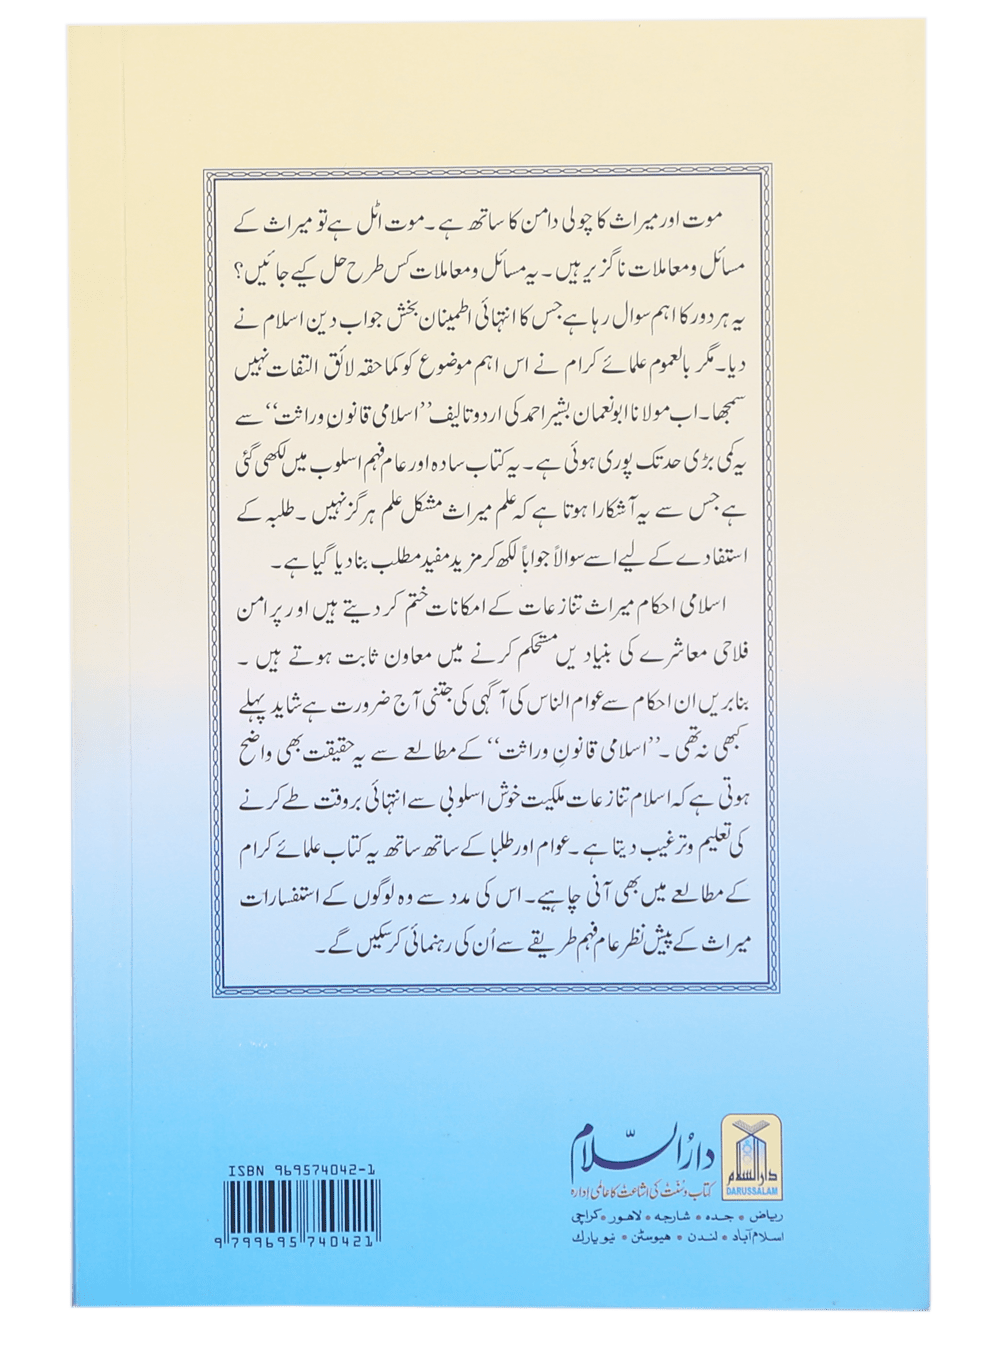 موت اور میراث کا چولی دامن کا ساتھ ہے۔ موت اٹل ہے تو میراث کے
مسائل و معاملات ناگزیر ہیں۔ یہ مسائل و معاملات کس طرح حل کیے جائیں؟
یہ ہر دور کا اہم سوال رہا ہے جس کا انتہائی اطمینان بخش جواب دین اسلام نے
دیا۔ مگر بالعموم علمائے کرام نے اس اہم موضوع کو کما حقہ لائق التفات نہیں
سمجھا۔ اب مولانا ابو نعمان بشیر احمد کی اردو تالیف ’’اسلامی قانونِ وراثت‘‘ سے
یہ کمی بڑی حد تک پوری ہوئی ہے۔ یہ کتاب سادہ اور عام فہم اسلوب میں لکھی گئی
ہے جس سے یہ آشکارا ہوتا ہے کہ علم میراث مشکل علم ہرگز نہیں۔ طلبہ کے
استفادے کے لیے اسے سوالاً جواباً لکھ کر مزید مفید مطلب بنا دیا گیا ہے۔
اسلامی احکام میراث تنازعات کے امکانات ختم کر دیتے ہیں اور پر امن
فلاحی معاشرے کی بنیادیں مستحکم کرنے میں معاون ثابت ہوتے ہیں۔
بنا بریں ان احکام سے عوام الناس کی آگہی کی جتنی آج ضرورت ہے شاید پہلے
کبھی نہ تھی۔ ’’اسلامی قانونِ وراثت‘‘ کے مطالعے سے یہ حقیقت بھی واضح
ہوتی ہے کہ اسلام تنازعات ملکیت خوش اسلوبی سے انتہائی بروقت طے کرنے
کی تعلیم و ترغیب دیتا ہے۔ عوام اور طلبا کے ساتھ ساتھ یہ کتاب علمائے کرام
کے مطالعے میں بھی آنی چاہیے۔ اس کی مدد سے وہ لوگوں کے استفسارات
میراث کے پیش نظر عام فہم طریقے سے اُن کی رہنمائی کر سکیں گے۔
دارالسلام
دارالسلام
DARUSSALAM
کتاب و سنت کی اشاعت کا عالمی ادارہ
ریاض • جدہ • شارجہ • لاہور • کراچی
اسلام آباد • لندن • ہیوسٹن • نیو یارک
ISBN 969574042-1
9 799695 740421